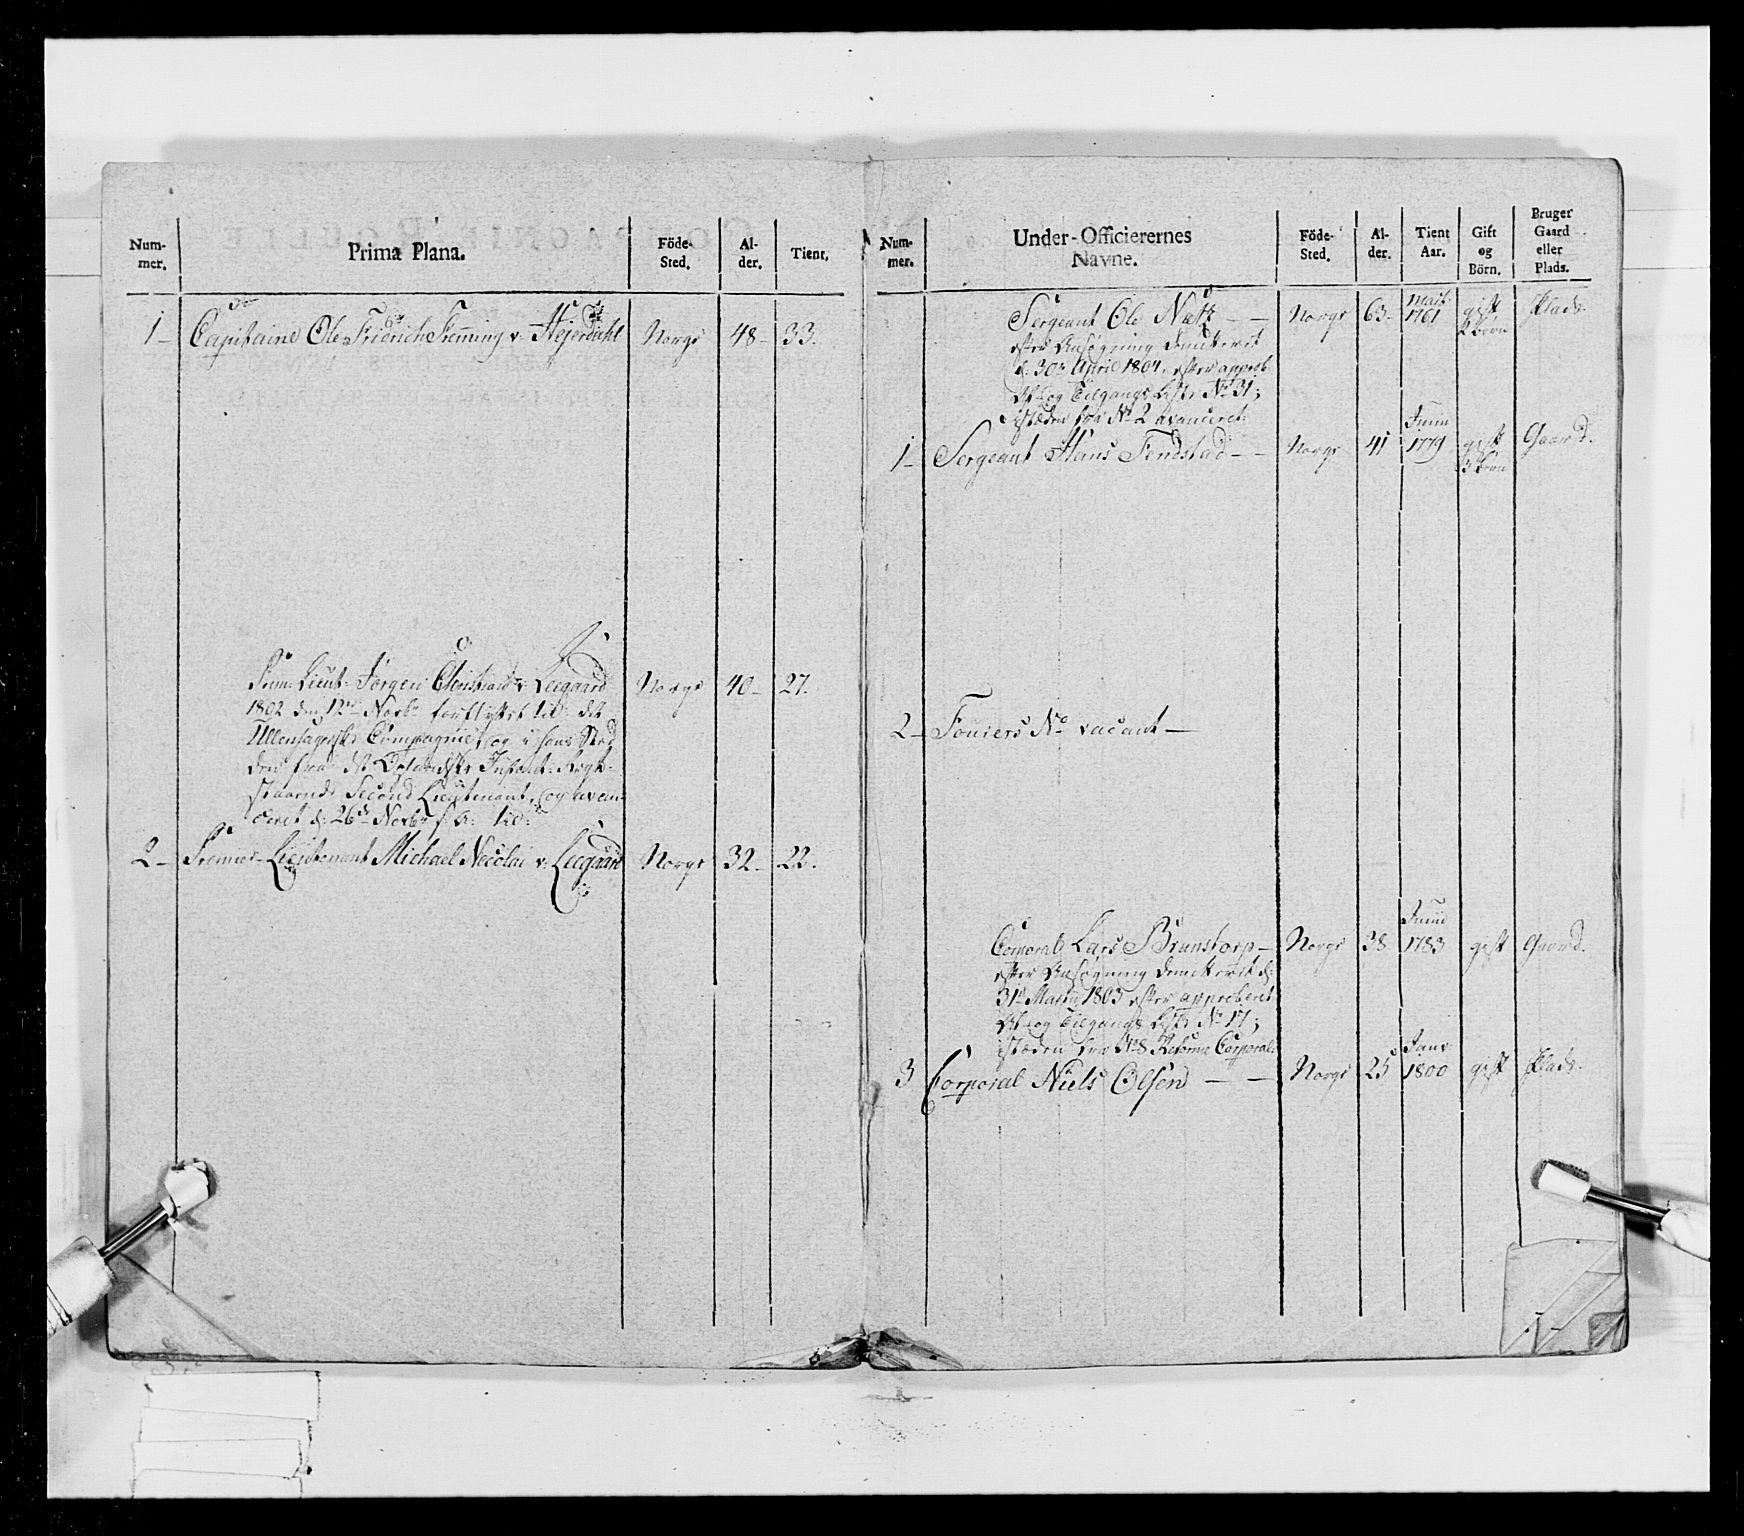 Num-
mer.
Prima Plana.
Föde-
Sted.
Al-
der.
Tient.
1- Capitaine Ole Friderich Flemming v. Hejerdahl Norge 48- 33.
Prem: Lieut: Jörgen Christian v: Leegaard Norge 40- 27.
1802 den 12te Novbr forflyttet til det
Ullensagerske Compagnie, og i hans Sted
den fra det Oplandske Infant: Regt:
staaende Second Lieutenant, og avan-
ceret d: 26de Novbr s: A: til:
2- Premier-Lieutenant Michael Nicolai v: Leegaard Norge 32- 22.
Num-
mer.
Under-Officierernes
Navne.
Föde-
Sted.
Al-
der.
Tient
Aar.
Gift
og
Börn.
Bruger
Gaard
eller
Plads.
Sergeant Ole - - Norge 63- 1761 gift 2 börn Plads.
efter Ansøgning demitteret
d: 30te April 1804, efter approb:
Af- og Tilgangs Liste No 31;
istæden fra No 2 avanceret:
1- Sergeant Hans Tendstad - - Norge 41 Junii 1779 gift 3 börn Gaard.
2- Fouriers No vacant -
Corporal Lars Brunstorp - Norge 38 Junii 1783 gift Gaard.
efter Ansøgning demitteret d:
31te Martii 1803 efter approberet
Af- og Tilgangs Liste No 17;
istæden fra No 8 Reserve Corporal:
3 Corporal Niels Olsen - - Norge 25 Janv: 1800 gift Plads.